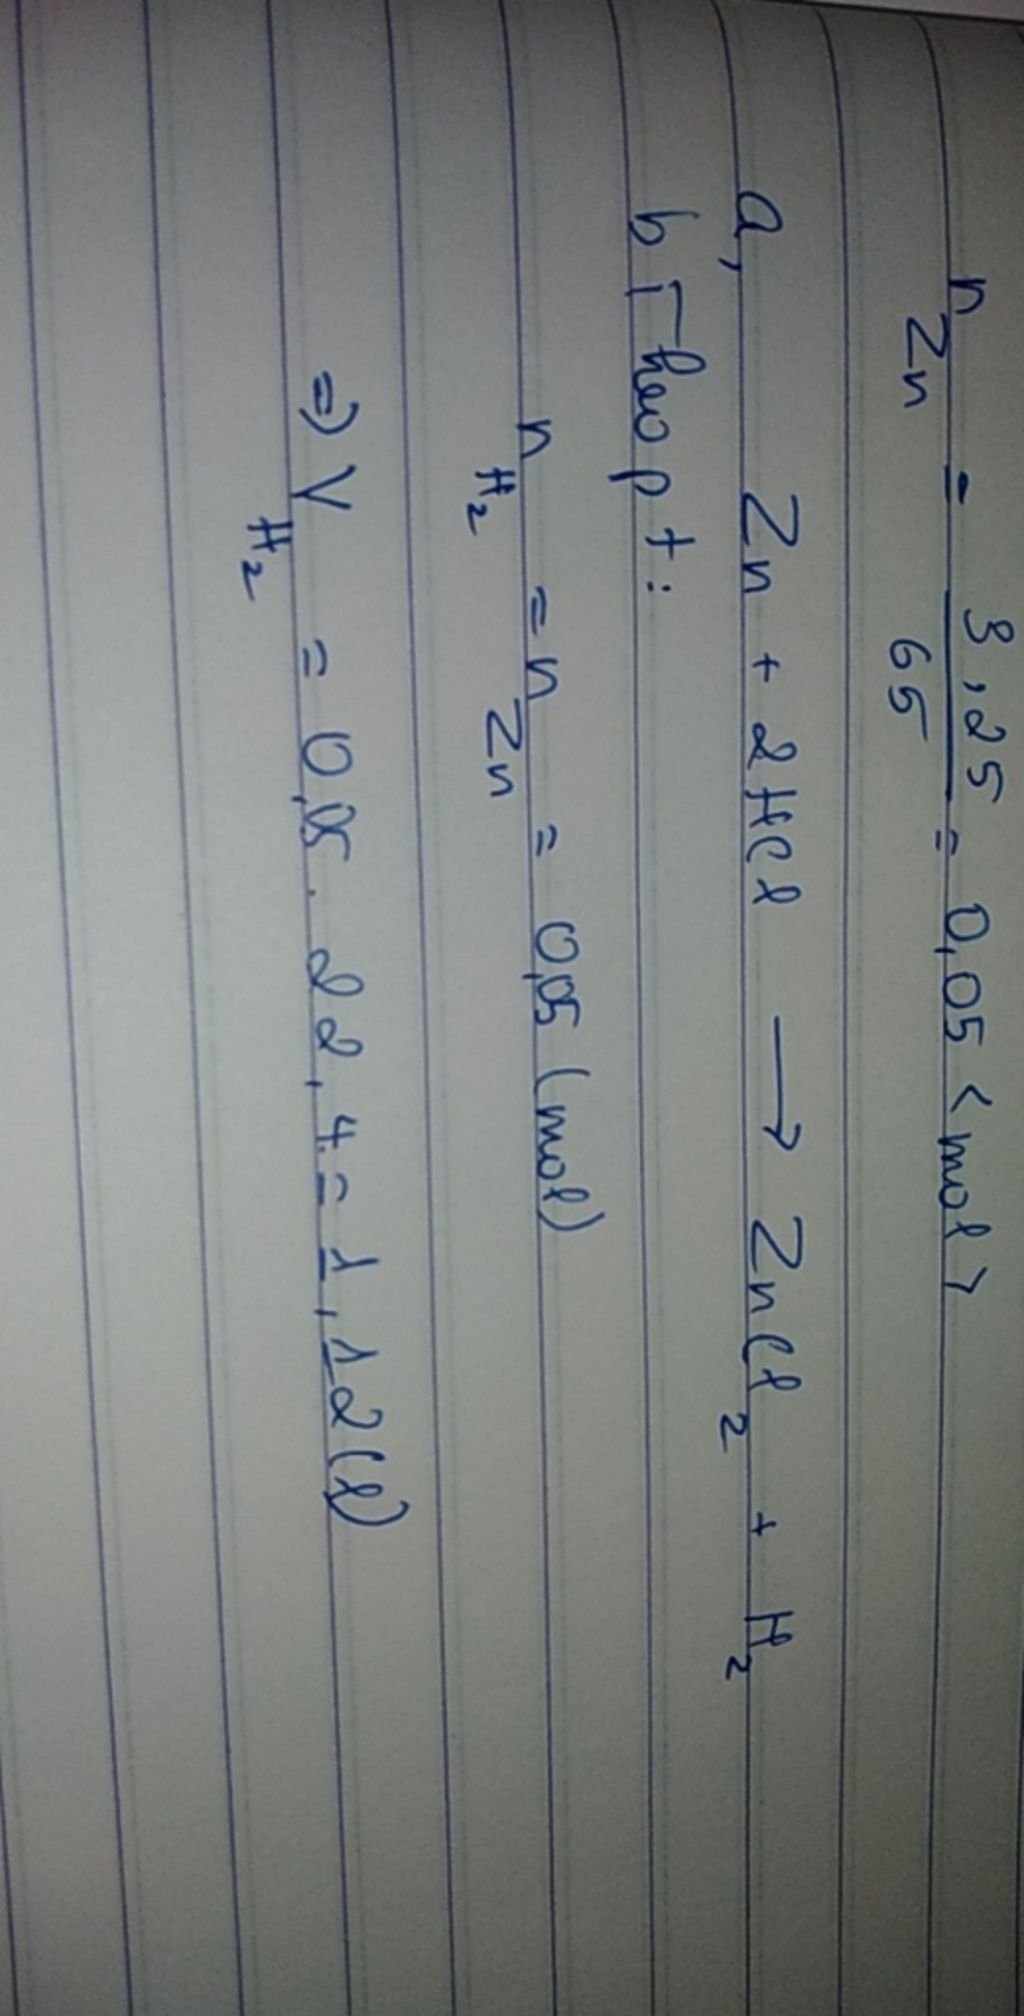 n Zn = 3,25/65 = 0,05 <mol>
a, Zn + 2HCl → ZnCl2 + H2
b, Theo pt:
n H2 = n Zn = 0,05 (mol)
=> V H2 = 0,05 . 22,4 = 1,12 (l)